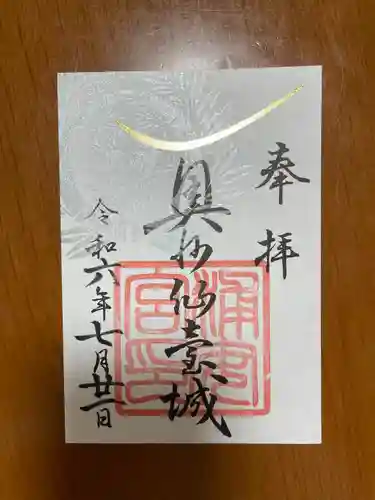 奉拝
奥州仙臺城
令和六年七月廿一日